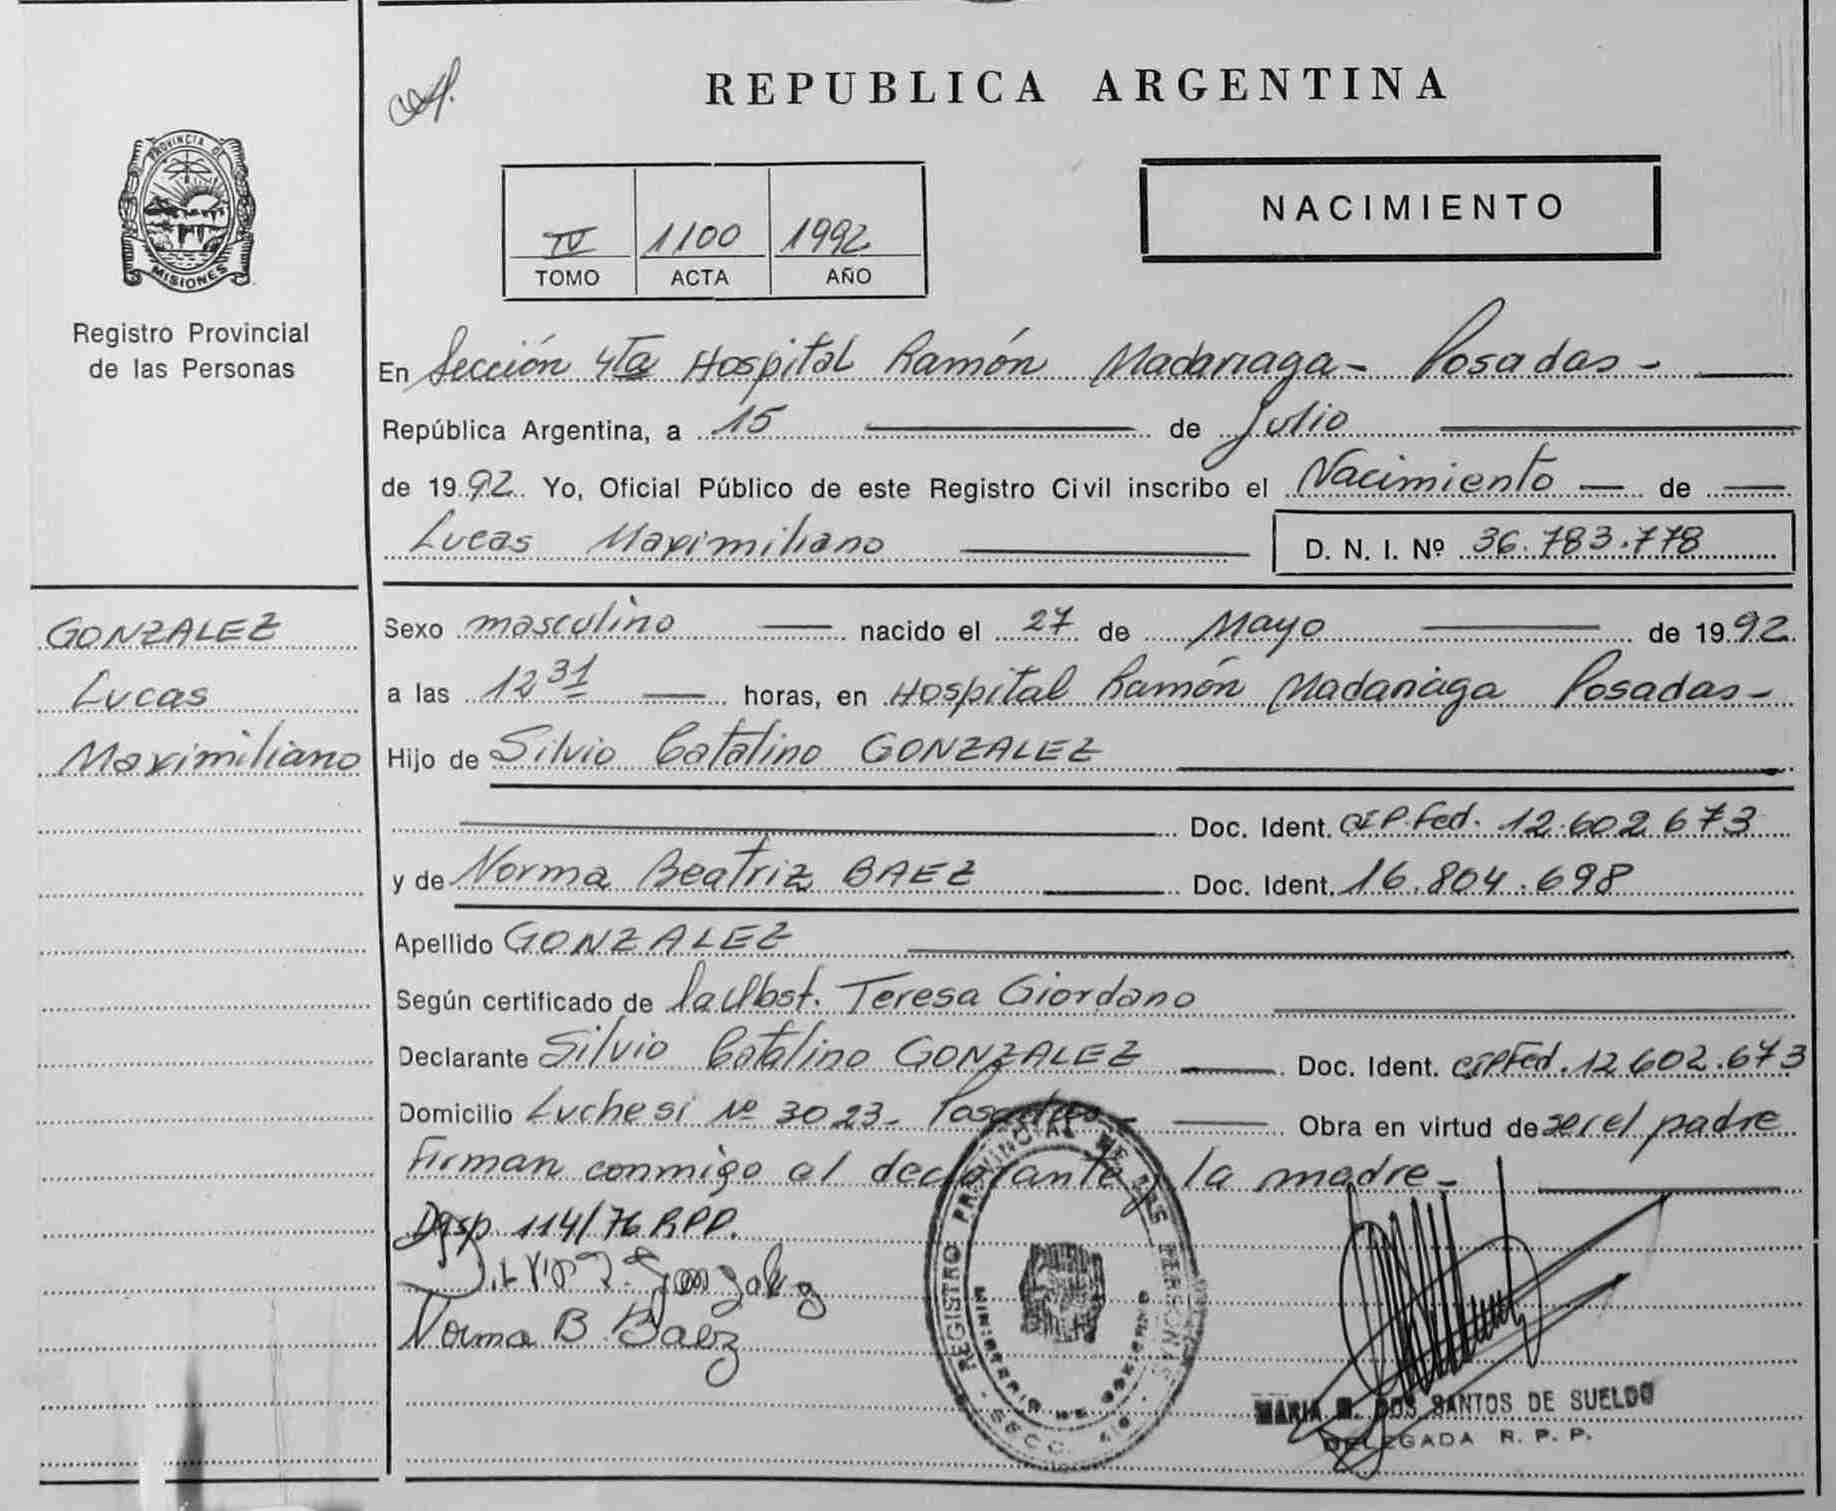 REPUBLICA ARGENTINA
PROVINCIA DE
MISIONES
Registro Provincial
de las Personas
IV 1100 1992
TOMO ACTA AÑO
NACIMIENTO
En Sección 4ta Hospital Ramón Madariaga - Posadas -
República Argentina, a 15 de Julio
de 1992 Yo, Oficial Público de este Registro Civil inscribo el Nacimiento de
Lucas Maximiliano D. N. I. Nº 36.783.778
GONZALEZ
Lucas
Maximiliano
Sexo masculino nacido el 27 de Mayo de 1992
a las 12 31 horas, en Hospital Ramón Madariaga Posadas -
Hijo de Silvio Catalino GONZALEZ
Doc. Ident. CIP.Fed. 12.602.673
y de Norma Beatriz BAEZ Doc. Ident. 16.804.698
Apellido GONZALEZ
Según certificado de la Obst. Teresa Giordano
Declarante Silvio Catalino GONZALEZ Doc. Ident. CIPFed. 12.602.673
Domicilio Luchesi Nº 3023 - Posadas - Obra en virtud de ser el padre
Firman conmigo el declarante y la madre -
Disp. 114/76 RPP.
Gonzalez
Norma B. Baez
REGISTRO PROVINCIAL DE LAS PERSONAS
MINISTERIO DE GOBIERNO
SECC. 4ta
MARIA DOS SANTOS DE SUELDO
DELEGADA R. P. P.